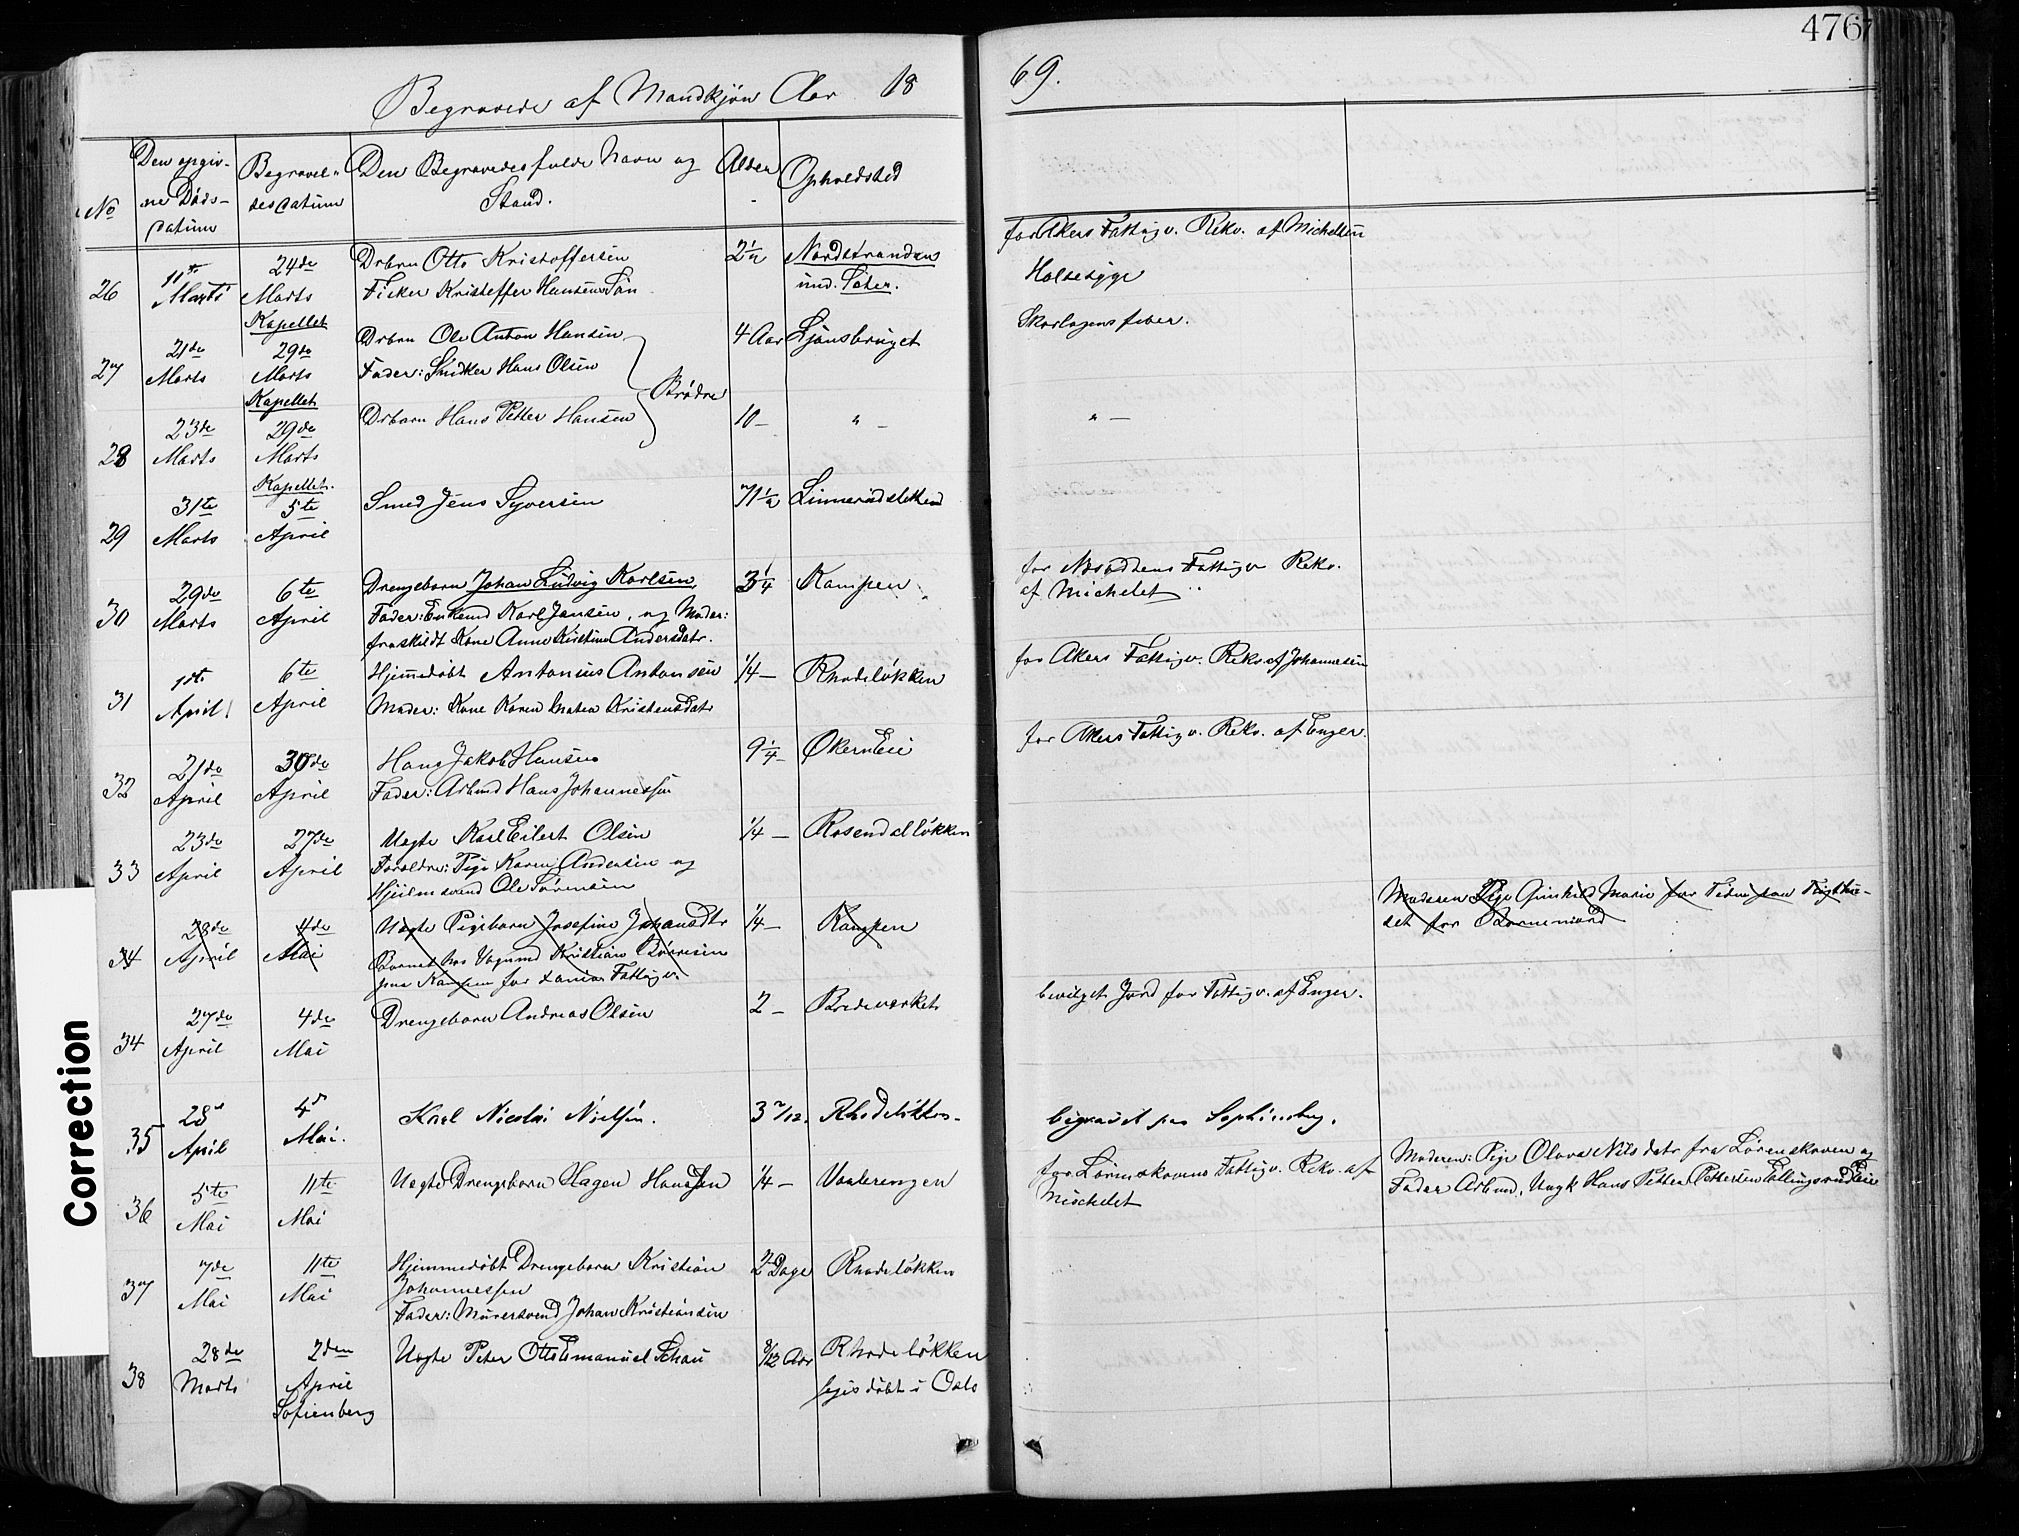 476
Begravede af Mandkjøn Aar 18
69.
No
Den opgiv-
ne Døds-
datum
Begravel-
sesdatum
Den Begravedes fulde Navn og
Stand.
Alder
Opholdsted
26
11te
Marts
24de
Marts
Kapellet
Drbrn Otto Kristoffersen
Fisker Kristoffer Hansens Søn
2½
Nordstrandens
und. Sæter.
for Akers Fattigv. Rekv. af Michelsen
Halsesyge
27
21de
Marts
29de
Marts
Kapellet
Drbrn Ole Anton Hansen
Fader: Snidker Hans Olsen
Brødre
4 Aar
Ljansbruget
Skarlagensfeber.
28
23de
Marts
29de
Marts
Kapellet.
Drbarn Hans Petter Hansen
10 —
" —
" —
29
31te
Marts
5te
April
Smed Jens Syversen
71½
Linnerudsletten
30
29de
Marts
6te
April
Drengebarn Johan Ludvig Karlsen
Fader: Enkemd Karl Jansen, og Moder:
fraskildt Kone Anne Kirstine Andersdatr.
3¼
Kampen
for Næsoddens Fattigv Rekv.
af Michelet
31
1ste
April
6te
April
Hjemmedøbt Antonius Antonsen
Moder: Kone Karen Mathea Kristensdatr
¼ —
Rhodeløkken
for Akers Fattigv. Rekv. af Johannesen
32
21de
April
30de
April
Hans Jakob Hansen
Fader: Arbmd Hans Johannessen
9¼
Økern Eie
for Akers Fattigv. Rekv. af Enger.
33
23de
April
27de
April
Uægte Karl Eilert Olsen
Forældre: Pige Karen Andersen og
Hjulmand Ole Sørensen
¼ —
Rosendalløkken
34
28de
April
4de
Mai
Uægte Pigebarn Josefine Johansdtr
Barnet hos Vognmd Kristian Børresen
paa Kampen for Fattigv.
¼ —
Kampen
Moderen Pige Marie for Tiden paa Tugthu-
set for Barnemord
34
27de
April
4de
Mai
Drengebarn Andreas Olsen
2 —
Bredeverket
bevilget Jord for Fattigv. af Enger.
35
28de
April
4de
Mai.
Karl Nicolai Nielsen.
3 2/12.
Rhodeløkken
begravet paa Sophienberg.
36
5te
Mai
11te
Mai
Uægte Drengebarn Hagen Hansen
¼ —
Vaalerengen
for Lørenskovens Fattigv. Rekv. af
Mischelet
Moderen: Pige Olava Nilsdatr fra Lørenskoven og
Fader Arbmd. Ungk Hans Petter Pettersen Ellingsrud Eie
37
7de
Mai
11te
Mai
Hjemmedøbt Drengebarn Kristian
Johannessen
Fader: Murersvend Johan Kristiansen
2 Dage
Rhodeløkken
38
28de
Marts
2den
April
Sofienberg
Uægte Peter Otto Emanuel Schau
8/12 Aar
Rhodeløkken
døbt i Oslo
Correction